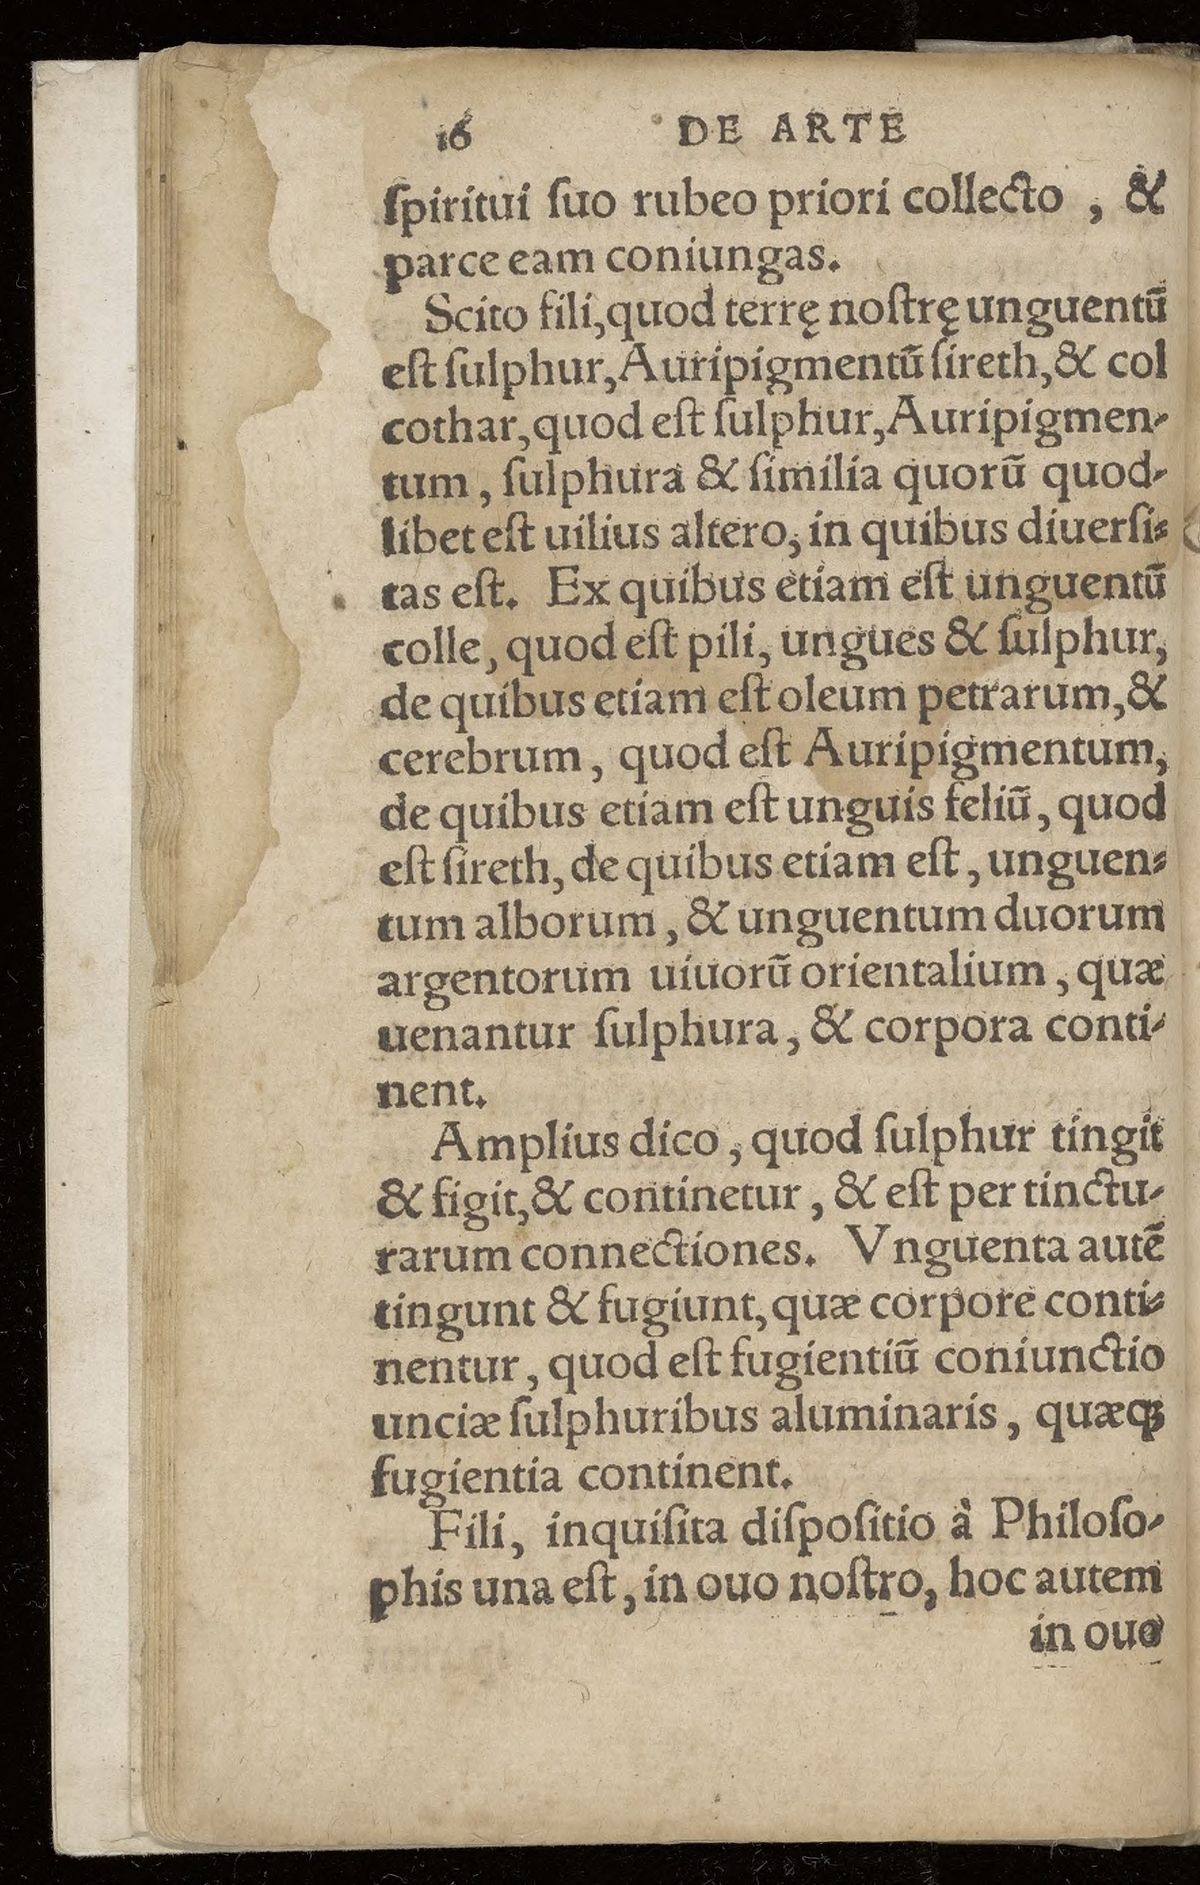 16 DE ARTE
ſpiritui ſuo rubeo priori collecto , &
parce eam coniungas.
Scito fili,quod terrę noſtrę unguentũ
eſt ſulphur,Auripigmentũ ſireth,& col
cothar,quod eſt ſulphur,Auripigmen-
tum , ſulphura & ſimilia quorũ quod-
libet eſt uilius altero, in quibus diuerſi-
tas eſt. Ex quibus etiam eſt unguentũ
colle, quod eſt pili, ungues & ſulphur,
de quibus etiam eſt oleum petrarum,&
cerebrum , quod eſt Auripigmentum,
de quibus etiam eſt unguis feliũ, quod
eſt ſireth, de quibus etiam eſt , unguen-
tum alborum , & unguentum duorum
argentorum uiuorũ orientalium , quæ
uenantur ſulphura , & corpora conti-
nent.
Amplius dico , quod ſulphur tingit
& figit,& continetur , & eſt per tinctu-
rarum connectiones. Vnguenta autẽ
tingunt & fugiunt,quæ corpore conti-
nentur , quod eſt fugientiũ coniunctio
unciæ ſulphuribus aluminaris , quæqꝫ
fugientia continent.
Fili, inquiſita diſpoſitio à Philoſo-
phis una eſt , in ouo noſtro, hoc autem
in ouo